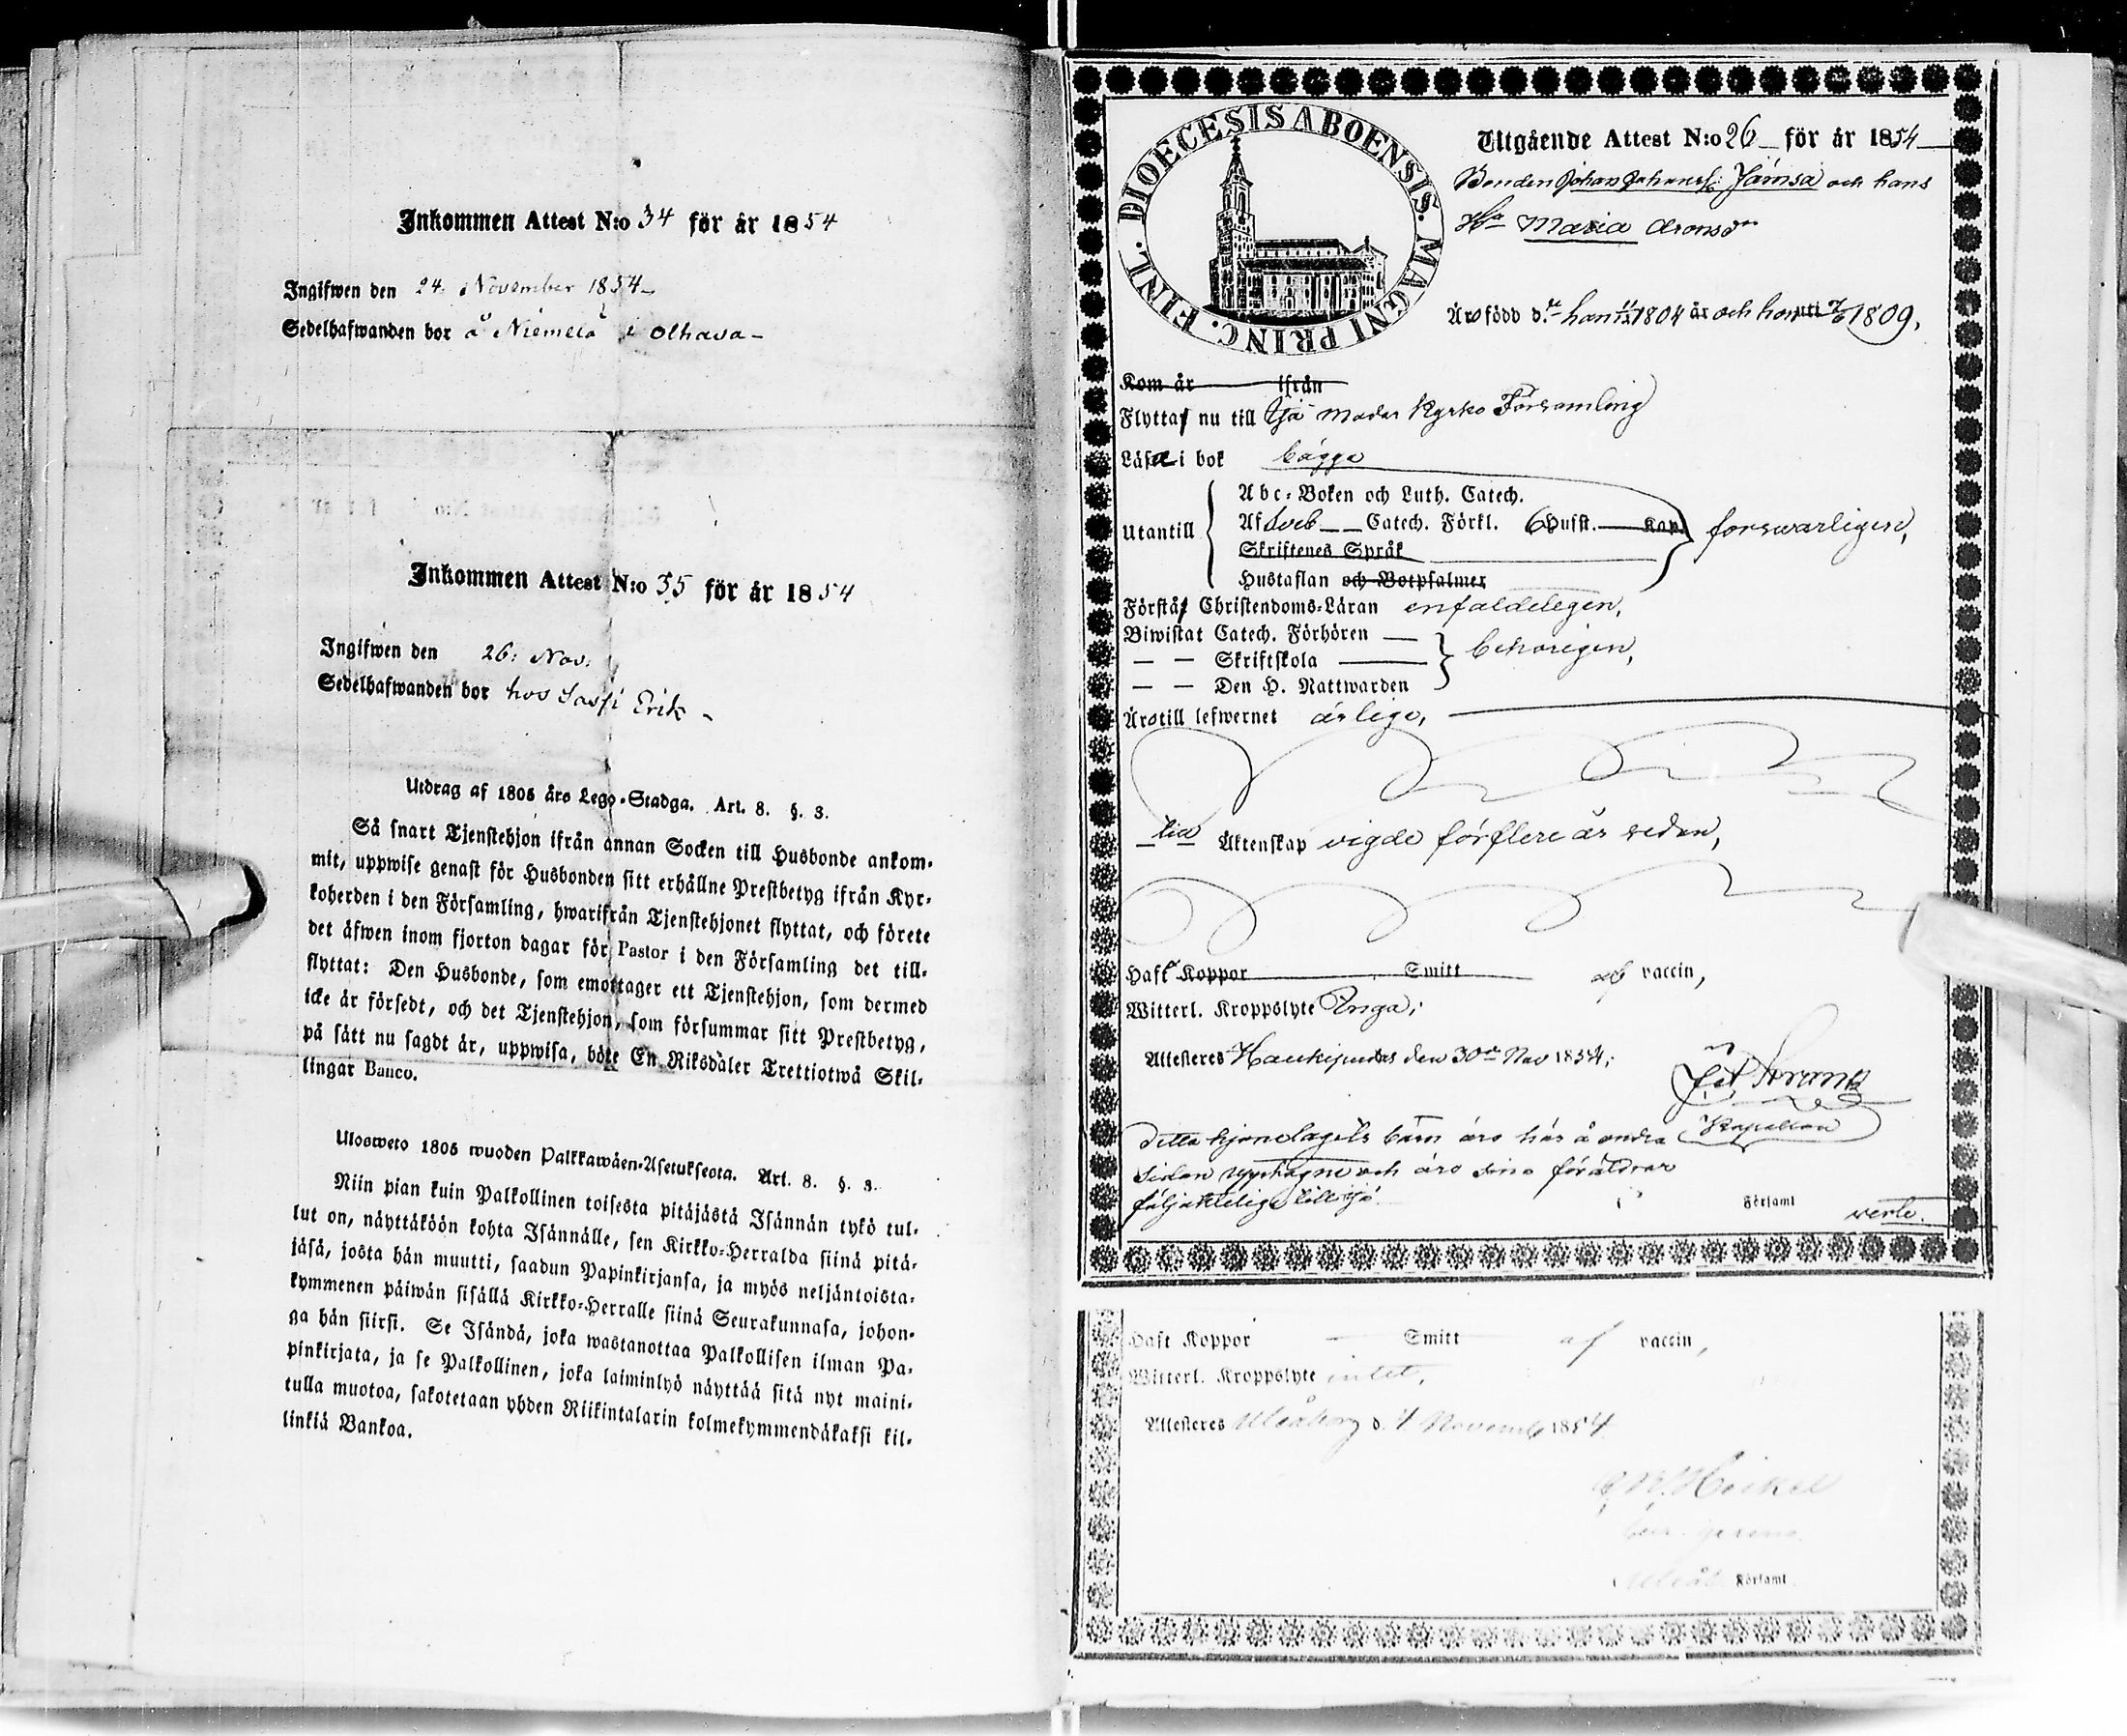 Inkommen Attest N:o 34 för år 1854
Ingifwen den 24. November 1854
Sedelhafwanden bor å Niemelä i Olhava
Inkommen Attest N:o 35 för år 1854
Ingifwen den 26. Nov.
Sedelhafwanden bor hos Sassi Erik
Utdrag af 1805 åro Lego-Stadga. Art. 8. §. 3.
Så snart Tjenstehjon ifrån annan Socken till Husbonde ankom-
mit, uppwise genast för Husbonden sitt erhållne Prestbetyg ifrån Kyr-
koherden i den Församling, hwarifrån Tjenstehjonet flyttat, och förete
det äfwen inom fjorton dagar för Pastor i den Församling det till-
flyttat: Den Husbonde, som emottager ett Tjenstehjon, som dermed
icke är försedt, och det Tjenstehjon, som försummar sitt Prestbetyg,
på sätt nu sagdt är, uppwisa, böte En Riksdaler Trettiotwå Skil-
lingar Banco.
Ulosweto 1805 wuoden Palkkawäen-Asetukseota. Art. 8. §. 3.
Niin pian kuin Palkollinen toisesta pitäjästä Isännän tykö tul-
lut on, näyttäköön kohta Isännälle, sen Kirkko-Herralda siinä pitä-
jäsä, josta hän muutti, saadun Papinkirjansa, ja myös neljäntoista-
kymmenen päiwän sisällä Kirkko-Herralle siinä Seurakunnasa, johon-
ga hän siirsi. Se Isändä, joka wastanottaa Palkollisen ilman Pa-
pinkirjata, ja se Palkollinen, joka laiminlyö näyttää sitä nyt maini-
tulla muotoa, sakotetaan yhden Riikintalarin kolmekymmendäkaksi kil-
linkiä Bankoa.
DIOECESIS ABOENSIS. MAGNI PRINC. FINL.
Utgående Attest N:o 26 för år 1854
Bonden Johan Johanss: Jämsä och hans
H:u Maria Aronsdr
Äro född d. han 1804 är och hon 1809.
Kom år ifrån
Flytta nu till Ijo Moder Kyrko Församling
Läsa i bok bägge
Utantill
Abc-Boken och Luth. Catech.
Af Sveb Catech. Förkl. 6 Hufst. Kap.
Skriftenes Språk
Hustaflan och Botpsalmer
försvarligen,
Förstå Christendoms-Läran enfaldeligen,
Biwistat Catech. Förhören
— — Skriftskola
— — Den H. Nattwarden
behörigen,
Äro till lefwernet ärlige,
till Äktenskap vigde för flere år sedan,
Haft Koppor Smitt af vaccin,
Witterl. Kroppslyte Inga;
Attesteres Haukipudas den 30de Nov 1854;
Kapellan
Detta hjonelagets barn äro här å andra
sidan upptagne och äro sina föräldrar
följaktelige till Ijo
Församl
verte.
Haft Koppor Smitt af vaccin,
Witterl. Kroppslyte intet,
Attesteres Uleåborg d. 4 Novemb 1854
Församl.